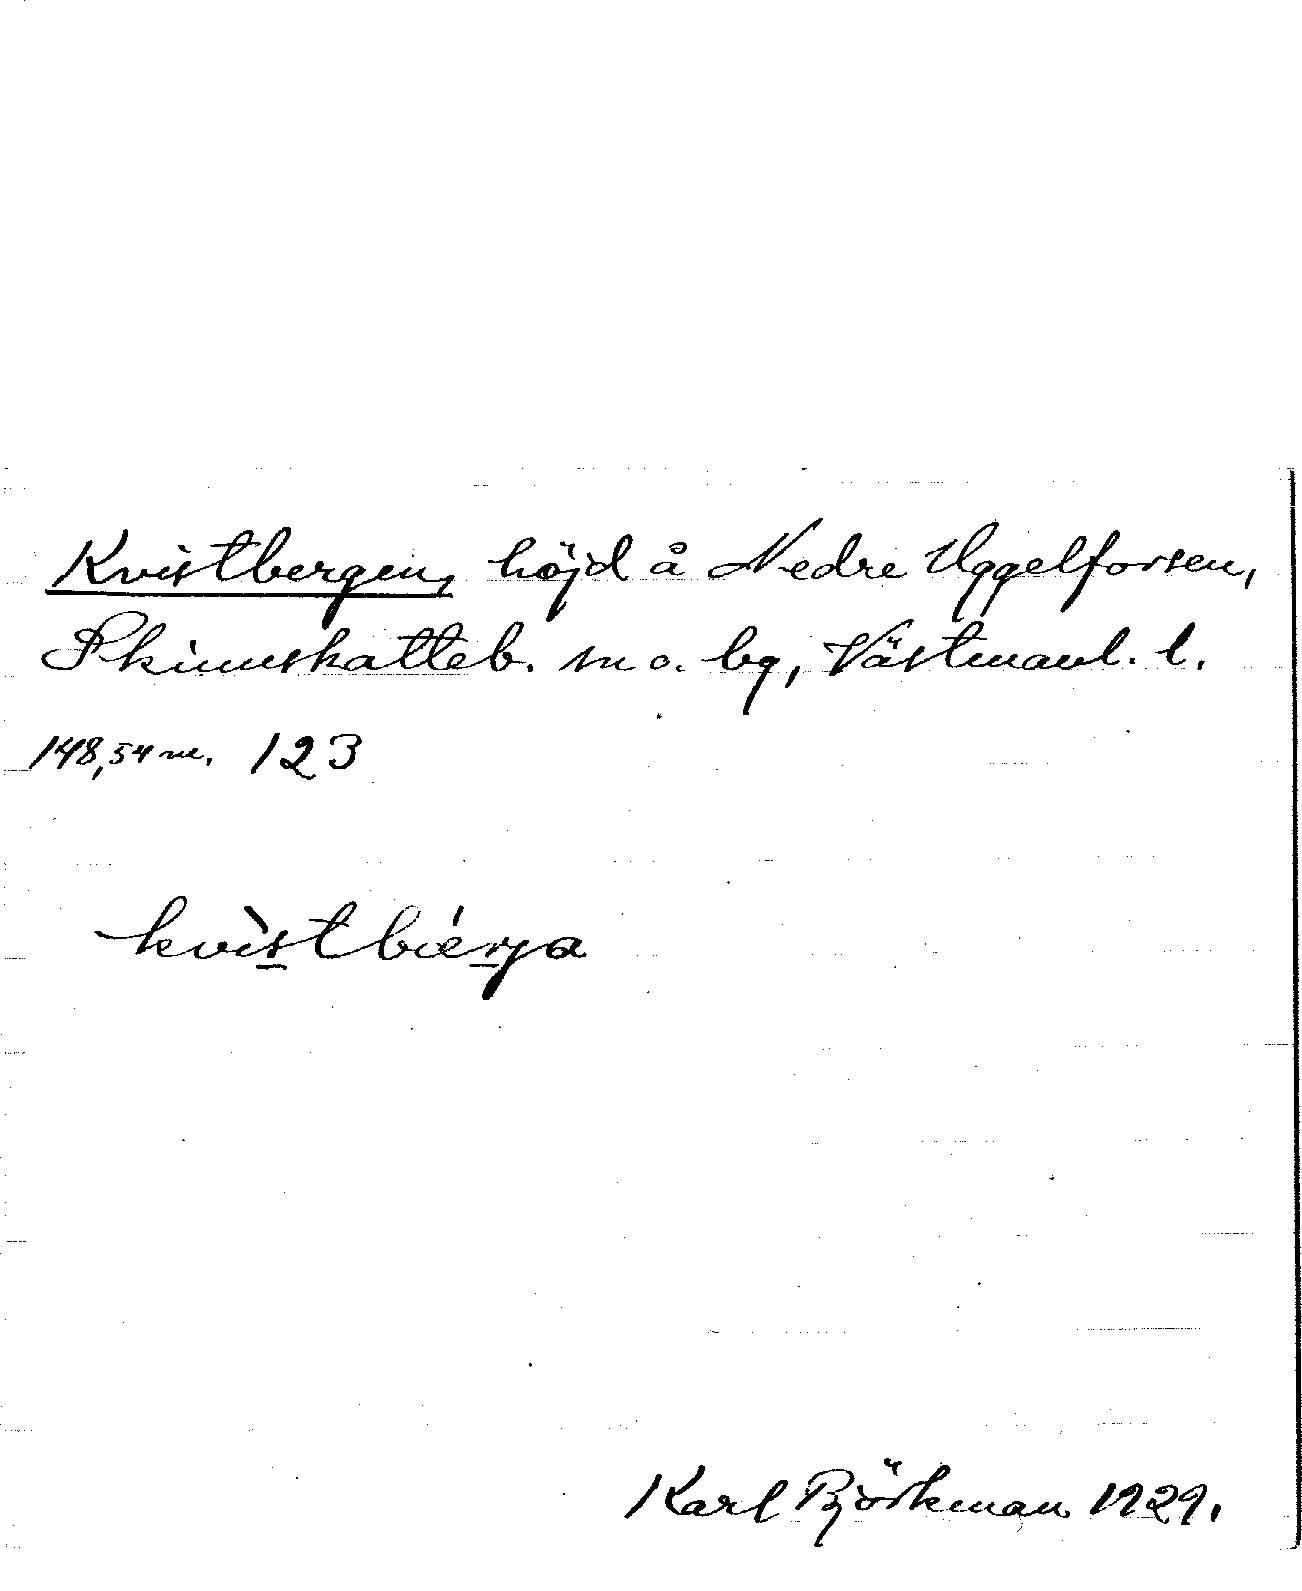 Kvistbergen, höjd å Nedre Uggelforsen,
Skinnskatteb. sn o. bg, Västmanl. l.
148,54 m. 123
kvìstbiérja
Karl Björkman 1929.